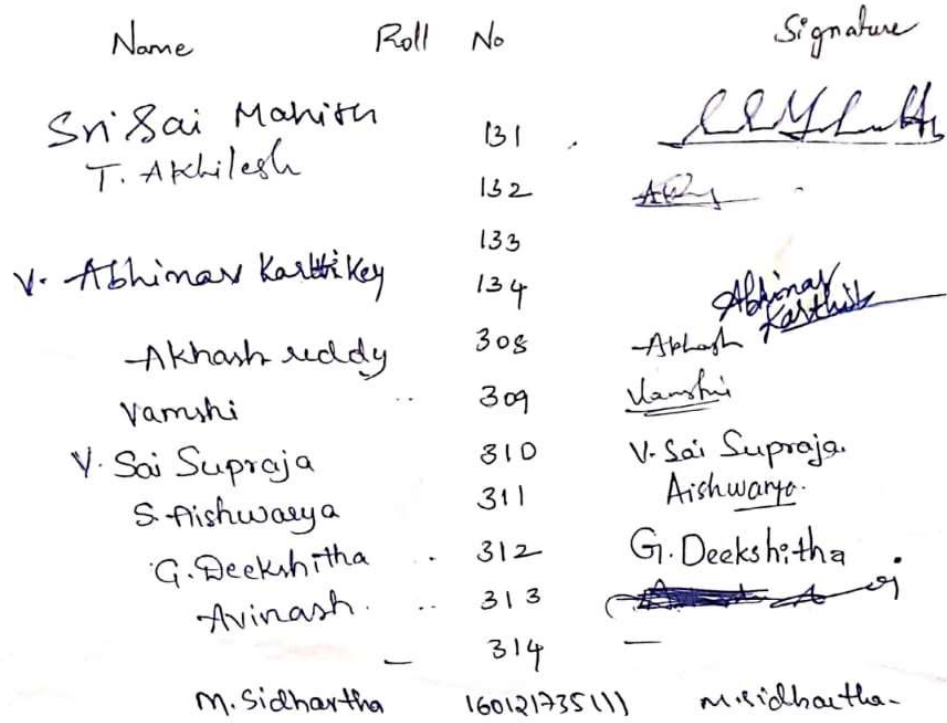 Name Roll No Signature
Sri Sai Mahith 131
T. Akhilesh 132
133
V. Abhinav Karthikey 134 Abhinav Karthik
Akhash reddy 308 Akhash
Vamshi 309 Vamshi
V. Sai Supraja 310 V. Sai Supraja
S. Aishwarya 311 Aishwarya.
G. Deekshitha 312 G. Deekshitha
Avinash. 313
— 314 —
M. Sidhartha 160121735111 M.Sidhartha-